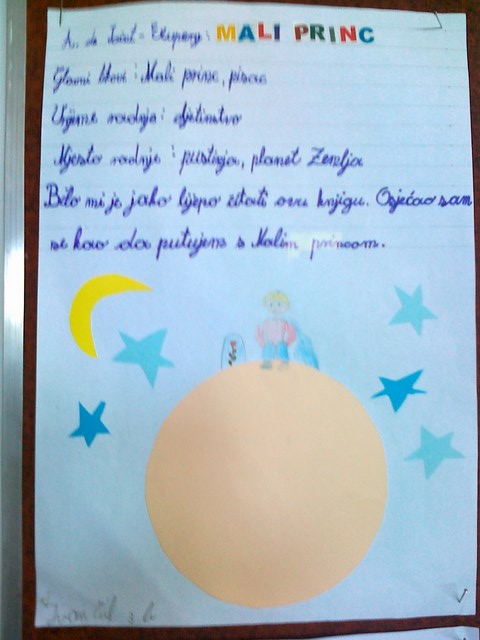 A. de Saint-Exupery: MALI PRINC
Glavni likovi: Mali princ, pisac
Vrijeme radnje: djetinstvo
Mjesto radnje: pustinja, planet Zemlja
Bilo mi je jako lijepo čitati ovu knjigu. Osjećao sam
se kao da putujem s Malim princom.